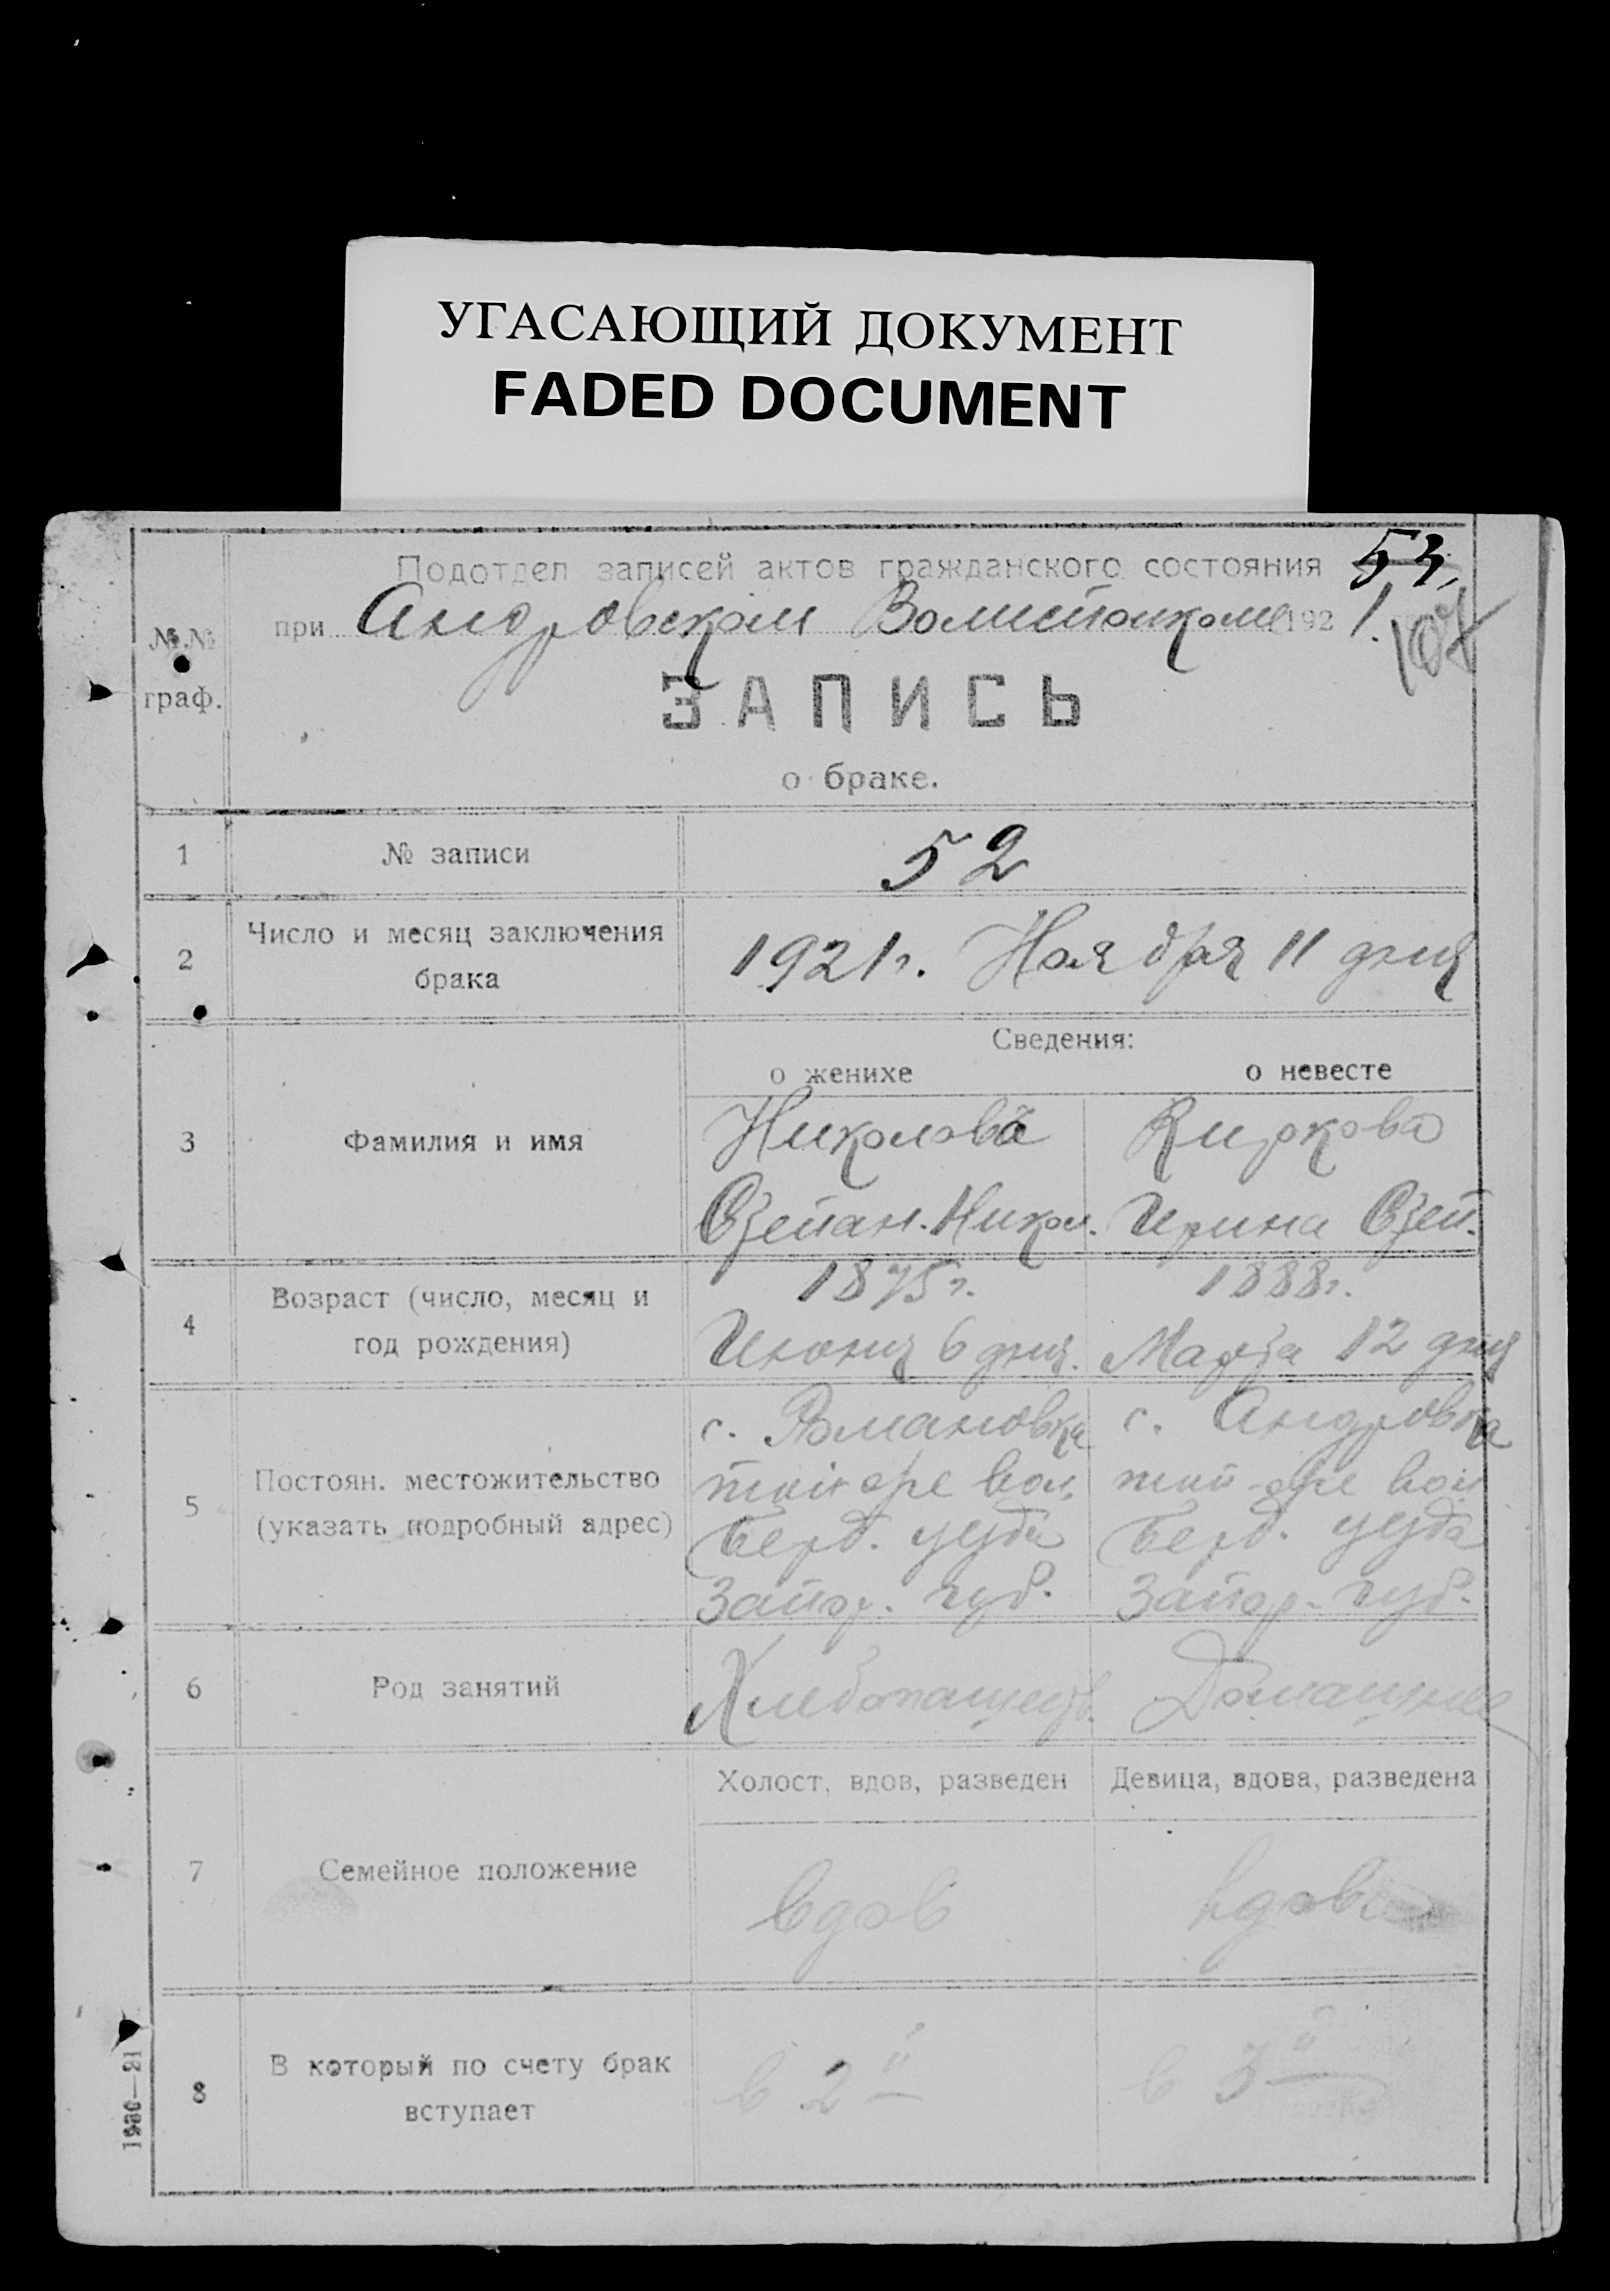 УГАСАЮЩИЙ ДОКУМЕНТ
FADED DOCUMENT
Подотдел записей актов гражданского состояния 53,
при Андровском Волисполкоме 192 1.
№.№ граф.
ЗАПИСЬ
о браке.
1 № записи 52
2 Число и месяц заключения
брака
1921г. Ноября 11 дня
Сведения:
о женихе о невесте
3 Фамилия и имя
Николова Киркова
Степан. Никол. Ирина Степ.
4 Возраст (число, месяц и
год рождения)
1875г. 1888г.
Июня 6 дня. Марта 12 дня
5 Постоян. местожительство
(указать подробный адрес)
с. Романовка с. Андровка
той-же вол. той-же вол
Берд. уезда Берд. уезда
Запор. губ. Запор. губ.
6 Род занятий
Хлебопашеств. Домашнее
Холост, вдов, разведен Девица, вдова, разведена
7 Семейное положение
вдов вдова
8 В который по счету брак
вступает
в 2й в 3й
1980—21